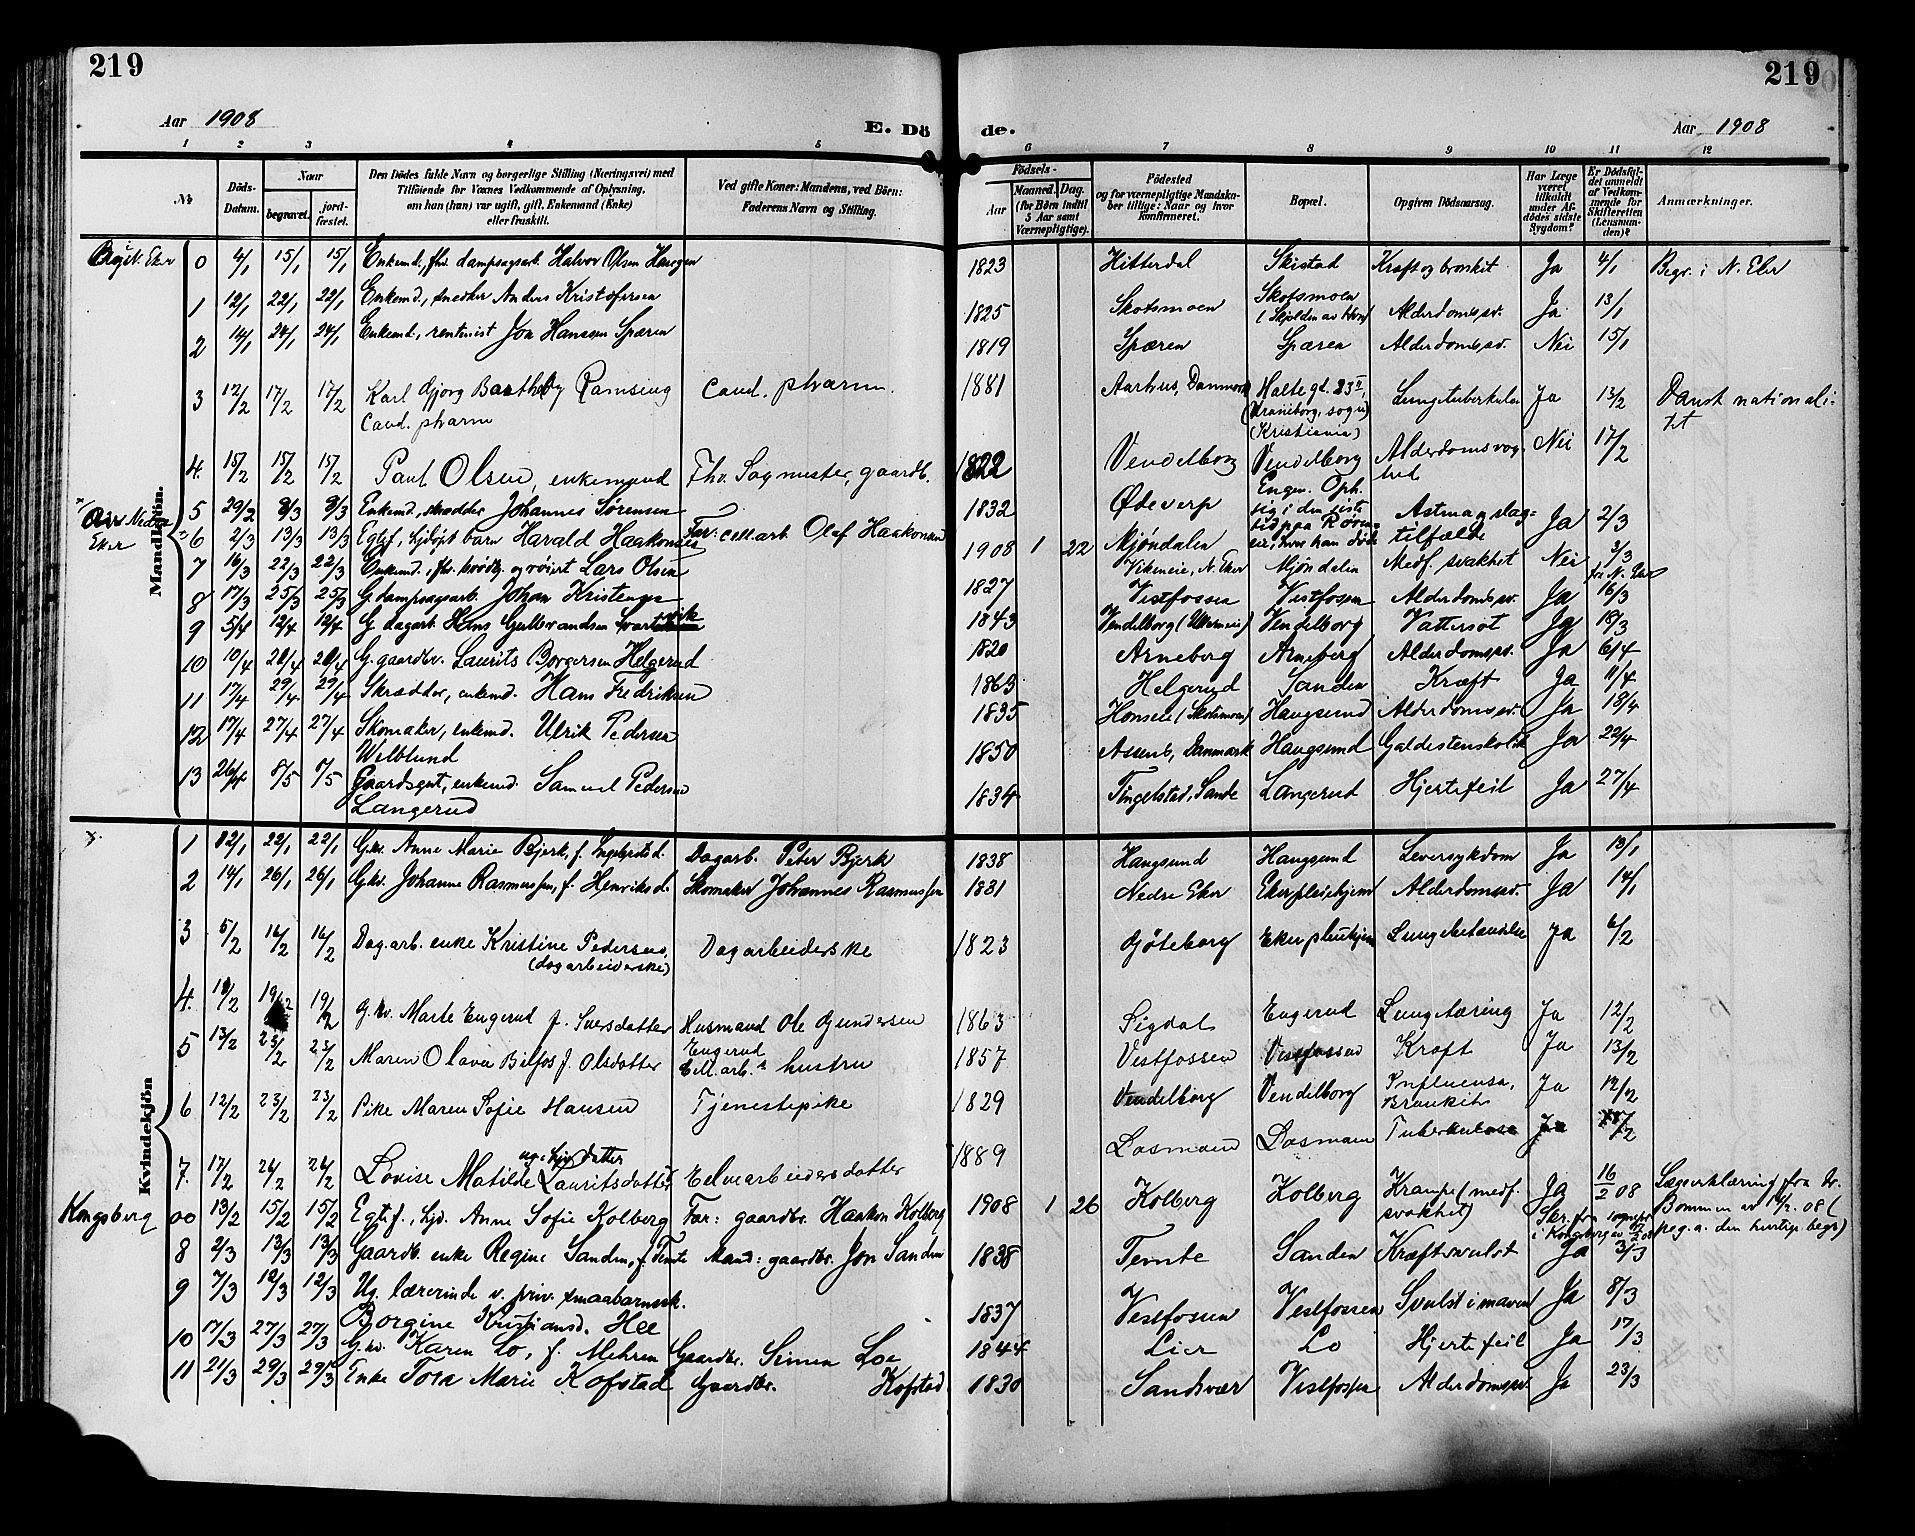 219
219
Aar 1908
E. Dö de.
Aar 1908
1 2 3 4 5 6 7 8 9 10 11 12
No
Döds-Datum.
Naar
begravet.
jordfæstet.
Den Dödes fulde Navn og borgerlige Stilling (Næringsvei) med
Tilföiende for Voxnes Vedkommende af Oplysning,
om han (hun) var ugift, gift, Enkemand (Enke)
eller fraskilt.
Ved gifte Koner: Mandens, ved Börn:
Faderens Navn og Stilling.
Födsels-
Aar
Maaned. Dag.
(for Börn indtil 5 Aar samt Værnepligtige).
Födested
og for værnepligtige Mandskaber tillige: Naar og hvor konfirmeret.
Bopæl.
Opgiven Dödsaarsag.
Har Læge været tilkaldt under Afdødes sidste Sygdom?
Er Dödsfaldet anmeldt af Vedkommende for Skifteretten (Lensmanden)?
Anmærkninger.
Mandkjön.
0 4/1 15/1 15/1 Enkemd., fhv. dampsagsarb. Halvor Olsen Haugen 1823 Hitterdal Skistad Kræft og brokkit Ja 4/1 Begr. i N. Eker
1 12/1 22/1 22/1 Enkemd., snedker Anders Kristofersen 1825 Skotsmoen Skotsmoen Alderdomssv. Ja 13/1
2 14/1 24/1 24/1 Enkemd., rentenist Jon Hansen Spæren 1819 Spæren Spæren Alderdomssv. Nei 15/1
3 12/2 17/2 17/2 Karl Gjørg Barthol Ramsing Cand. pharm. 1881 Aarhus, Danmark Halte gd. 23 II Lungetuberkulos Ja 13/2 Dansk nationali-
Cand. pharm (Uranieborg, sogn) tet
(Kristiania)
4. 15/2 15/2 15/2 Paul Olsen, enkemand Fhv. Sagmester, gaardb. 1822 Vendelborg Vendelborg Alderdomssvag- Nei 17/2
hed
Nedre Eker
5 29/2 8/3 8/3 Enkemd., skrædder Johannes Sørensen 1832 Ødeverp Astma og slag- Ja 2/3
tilfælde
6 2/3 13/3 13/3 Egtef., hjdøpt barn Harald Haakonsen Far: cell.arb. Olaf Haakonsen 1908 1 22 Mjøndalen Mjøndalen Medf. svakhet Nei 3/3
7 16/3 22/3 22/3 Enkemd., fhv. brødbg. og røirt Lars Olsen 1827 Vestfossen Vestfossen Alderdomssv. Ja 16/3
8 17/3 25/3 25/3 G. dampsagsarb. Johan Kristensen 1843 Vendelborg Vendelborg Vattersot Ja 18/3
9 5/4 12/4 12/4 G. dagarb. Hans Gulbrandsen 1820 Arneberg Arneberg Alderdomssv. Ja 6/4
10 10/4 20/4 20/4 G. gaardbr. Laurits Borgersen Helgerud 1863 Helgerud Sanden Kræft Ja 11/4
11 17/4 29/4 29/4 Skrædder, enkemd. Hans Fredriksen 1835 Haugsund Alderdomssv. Ja 18/4
12 17/4 27/4 27/4 Skomaker, enkemd. Ulrik Pedersen 1850 Assens, Danmark Haugsund Galdestenskolik Ja 22/4
Welblund
13 26/4 8/5 8/5 Gaardsgut, enkemd. Samuel Pedersen 1834 Tingelstad, Sande Langerud Hjertefeil Ja 27/4
Langerud
Kvindekjön
1 22/1 22/1 G.kv. Anne Marie Bjerk, f. Engebretsd. Dagarb. Peter Bjerk 1838 Haugsund Haugsund Leversykdom Ja 13/1
2 14/1 26/1 26/1 G.kv. Johanne Rasmussen, f. Henriksd. Skomaker Johannes Rasmussen 1831 Nedre Eker Ekerpleiehjem Alderdomssv. Ja 14/1
3 5/2 14/2 14/2 Dagarb. enke Kristine Pedersen Dagarbeiderske 1823 Gøteborg Eker pleiehjem Lungebetændelse Ja 6/2
(dagarbeiderske)
4. 11/2 19/2 19/2 G.kv. Marte Engerud f. Iversdatter Husmand Ole Gundersen 1863 Sigdal Engerud Lungetæring Ja 12/2
Engerud
5 13/2 23/2 23/2 Maren Olava Bilfos f. Olsdatter Cell.arb.s hustru 1857 Vestfossen Vestfossen Kræft Ja 13/2
6 12/2 23/2 23/2 Pike Maren Sofie Hansen Tjenestepike 1829 Vendelborg Vendelborg Influensa, Ja 12/2
Bronkit
7. 17/2 26/2 26/2 Lovise Matilde Lauritsdatter Elvearbeidersdatter 1889 Losmoen Losmoen Tuberkulose Ja 17/2
Kongsberg
00 13/2 15/2 15/2 Egtef., hjd. Anne Sofie Kolberg Far: gaardbr. Haakon Kolberg 1908 1 26 Kolberg Kolberg Krampe (medf. Ja 16/2 08 Lægeerklæring fra Dr.
svakhet) Bommen av 14/2 08 (
peg. a. den hurtige begr.)
8 2/3 13/3 13/3 Gaardb. enke Regine Sanden, f. Temte Mand: gaardbr. Jon Sanden 1838 Temte Sanden Kræftsvulst Ja 3/3
9 7/3 12/3 12/3 Ug. lærerinde v. priv. smaabarnssk. 1837 Vestfossen Vestfossen Svulst i maven Ja 8/3
Borgine Kristiansd. Hee
10 17/3 27/3 27/3 G.kv. Karen Lo, f. Mehren Gaardbr. Simen Loe 1844 Lier Lo Hjertefeil Ja 17/3
11 21/3 29/3 29/3 Enke Tora Marie Kofstad Gaardbr. Kofstad 1830 Sandsvær Vestfossen Alderdomssv. Ja 23/3